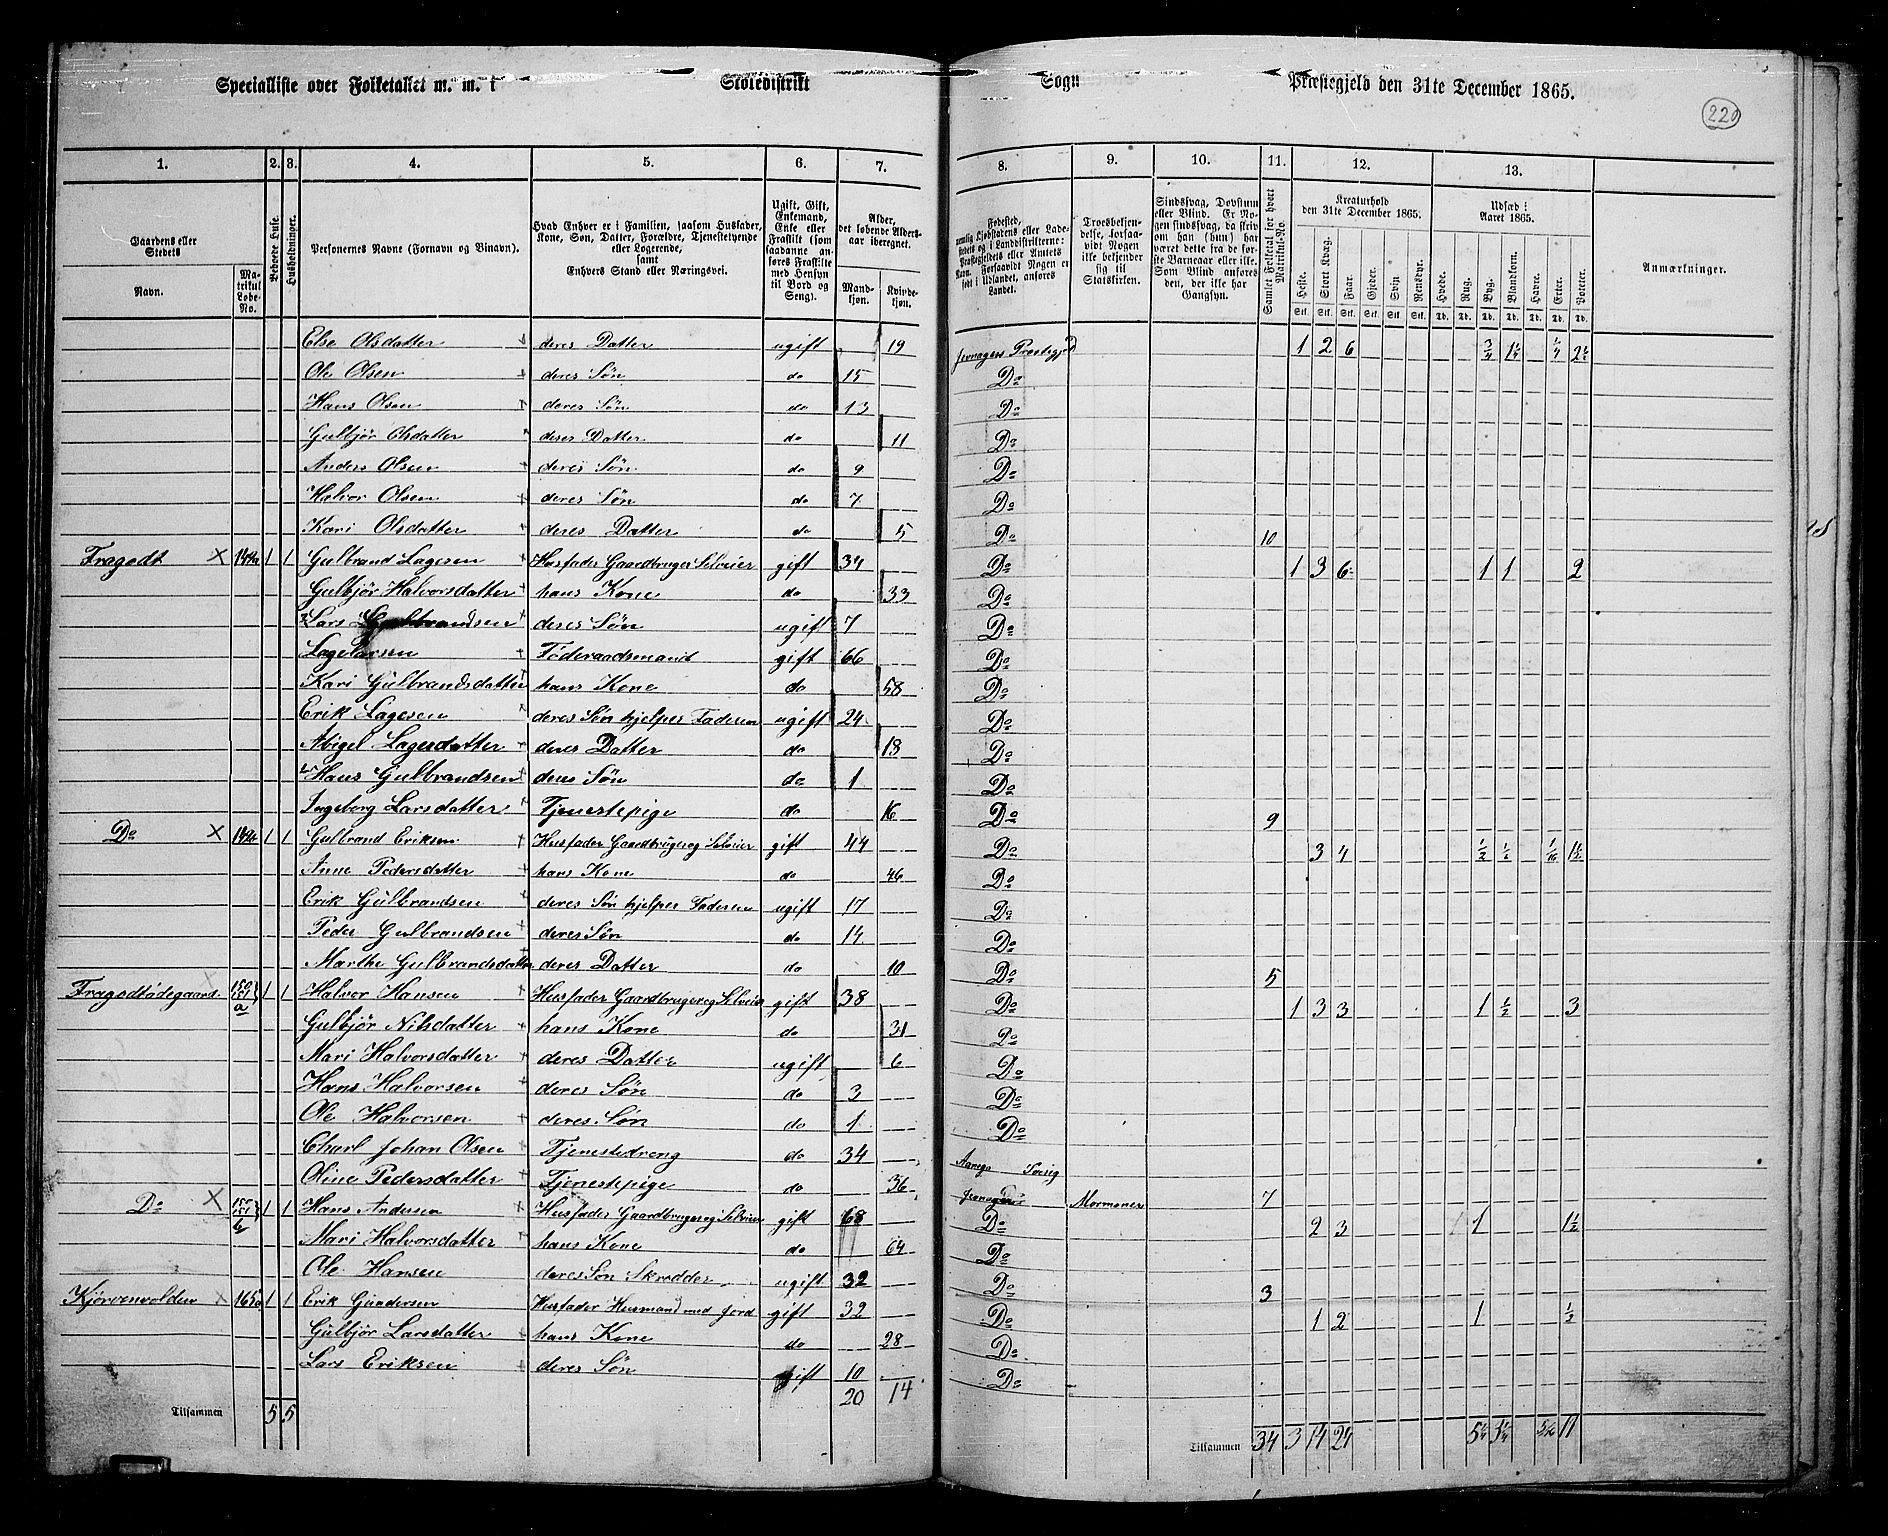 Specialliste over Folketallet m. m. i Skoledistrikt Sogn Præstegjeld den 31te December 1865.
220
1. 2. 3. 4. 5. 6. 7. 8. 9. 10. 11. 12. 13.
Gaardens eller Stedets
Navn.
Matrikul Løbe-No.
Beboede Huse.
Husholdninger.
Personernes Navne (Fornavn og Binavn).
Hvad Enhver er i Familien, saasom Husfader, Kone, Søn, Datter, Forældre, Tjenestetyende eller Logerende, samt Enhvers Stand eller Næringsvei.
Ugift, Gift, Enkemand, Enke eller Fraskilt (som saadanne anføres Fraskilte med Hensyn til Bord og Seng).
Alder, det løbende Aldersaar iberegnet.
Mandkjøn. Kvindekjøn.
Fødested, nemlig Kjøbstadens eller Ladestedets og i Landdistrikterne: Præstegjeldets eller Amtets Navn. Forsaavidt Nogen er født i Udlandet, anføres Landet.
Troesbekjendelse, forsaavidt Nogen ikke bekjender sig til Statskirken.
Sindssvag, Døvstum eller Blind. Er Nogen sindssvag, da skriv om han (hun) har været dette fra de første Barneaar eller ikke. Som Blind anføres den, der ikke har Gangsyn.
Samlet Folketal for hvert Matrikul-No.
Kreaturhold den 31te December 1865.
Heste. Stort Kvæg. Faar. Gjeder. Svin Rensdyr.
Stk. Stk. Stk. Stk. Stk. Stk.
Udsæd i Aaret 1865.
Hvede. Rug. Byg. Blandkorn. Havre. Erter. Poteter.
Td. Td. Td. Td. Td. Td. Td.
Anmærkninger.
Else Olsdatter deres Datter ugift 19 Jevnagers Præstegjd 1 2 6 3/4 1 1/4 1/4 2 1/2
Ole Olsen deres Søn do 15 Do
Hans Olsen deres Søn do 13 Do
Gulbjør Olsdatter deres Datter do 11 Do
Anders Olsen deres Søn do 9 Do
Halvor Olsen deres Søn do 7 Do
Kari Olsdatter deres Datter do 5 Do 10
Fragodt 1 1 Gulbrand Lagesen Husfader Gaardbruger Selveier gift 34 Do 1 3 6 1 1 2
Gulbjør Halvorsdatter hans Kone do 33 Do
Lars Gulbrandsen deres Søn ugift 7 Do
Lage Larsen Føderaadsmand gift 66 Do
Kari Gulbrandsdatter hans Kone do 58 Do
Erik Lagesen deres Søn hjelper Faderen ugift 24 Do
Abigel Lagesdatter deres Datter do 18 Do
Hans Gulbrandsen deres Søn do 1 Do
Ingeborg Larsdatter Tjenestepige do 16 Do 9
Do 1 1 Gulbrand Eriksen Husfader Gaardbruger og Selveier gift 44 Do 3 4 1/2 1/2 1/16 1 1/2
Anne Pedersdatter hans Kone do 46 Do
Erik Gulbrandsen deres Søn hjelper Faderen ugift 17 Do
Peder Gulbrandsen deres Søn do 14 Do
Marthe Gulbrandsdatter deres Datter do 10 Do 5
Fragodtødegaard 150 151 a 1 1 Halvor Hansen Husfader Gaardbruger og Selveier gift 38 Do 1 3 3 1 1/2 3
Gulbjør Nilsdatter hans Kone do 31 Do
Mari Halvorsdatter deres Datter ugift 6 Do
Hans Halvorsen deres Søn do 3 Do
Ole Halvorsen deres Søn do 1 Do
Charl Johan Olsen Tjenestedreng do 34 Sverig
Oline Pedersdatter Tjenestepige do 36 Jevnager Mormoner 7
Do 151 b 1 1 Hans Andersen Husfader Gaardbruger og Selveier gift 68 Do 2 3 1 1 1/2
Mari Halvorsdatter hans Kone do 64 Do
Ole Hansen deres Søn Skrædder ugift 32 Do 3
Kjørvenvolden 165a 1 1 Erik Gundersen Husfader Husmand med Jord gift 32 Do 1 2 1 1/2
Gulbjør Larsdatter hans Kone do 28 Do
Lars Eriksen deres Søn gift 10 Do
Tilsammen 5 5 20 14 Tilsammen 34 3 14 24 11